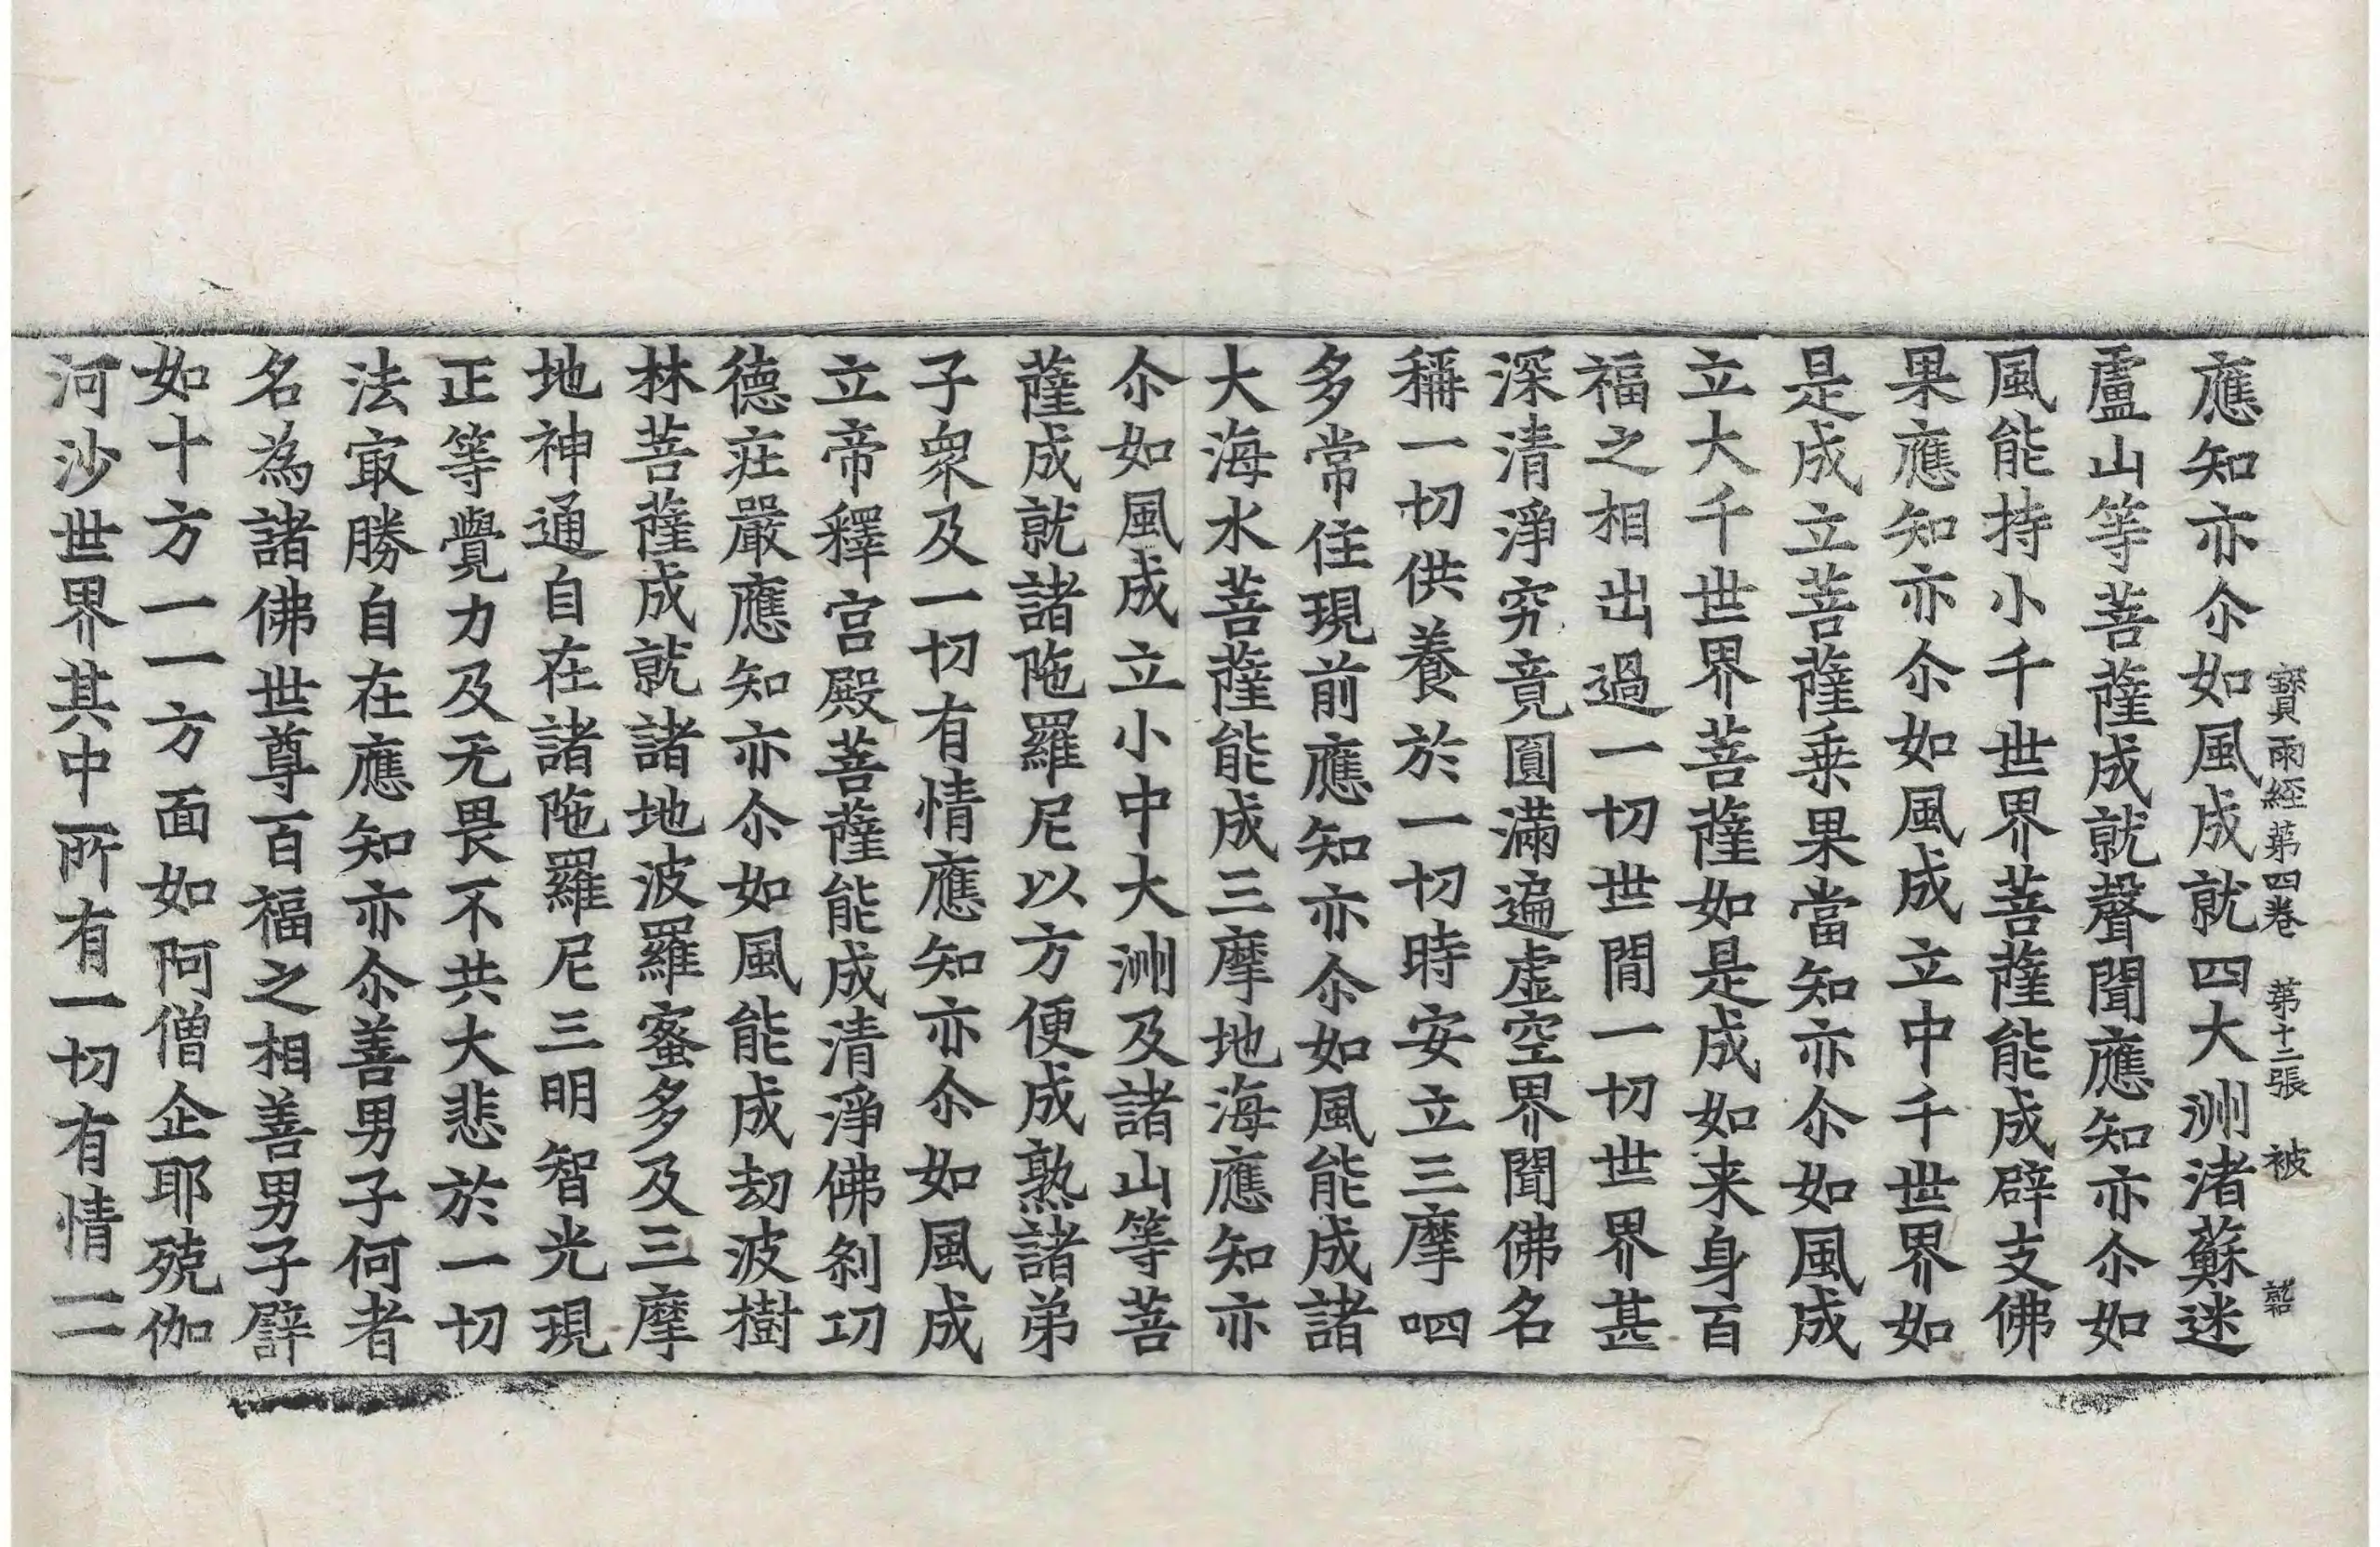 寳雨經第四卷 第十二張 被
應知亦尒如風成就四大洲渚蘇迷
盧山等菩薩成就聲聞應知亦尒如
風能持小千世界菩薩能成辟支佛
果應知亦尒如風成立中千世界如
是成立菩薩乗果當知亦尒如風成
立大千世界菩薩如是成如来身百
福之相出過一切世間一切世界甚
深清淨究竟圓滿遍虛空界聞佛名
稱一切供養於一切時安立三摩呬
多常住現前應知亦尒如風能成諸
大海水菩薩能成三摩地海應知亦
尒如風成立小中大洲及諸山等菩
薩成就諸陁羅尼以方便成熟諸弟
子衆及一切有情應知亦尒如風成
立帝釋宫殿菩薩能成清淨佛刹功
德莊嚴應知亦尒如風能成劫波樹
林菩薩成就諸地波羅蜜多及三摩
地神通自在諸陁羅尼三明智光現
正等覺力及无畏不共大悲於一切
法㝡勝自在應知亦尒善男子何者
名為諸佛世尊百福之相善男子譬
如十方一一方面如阿僧企耶殑伽
河沙世界其中所有一切有情一一